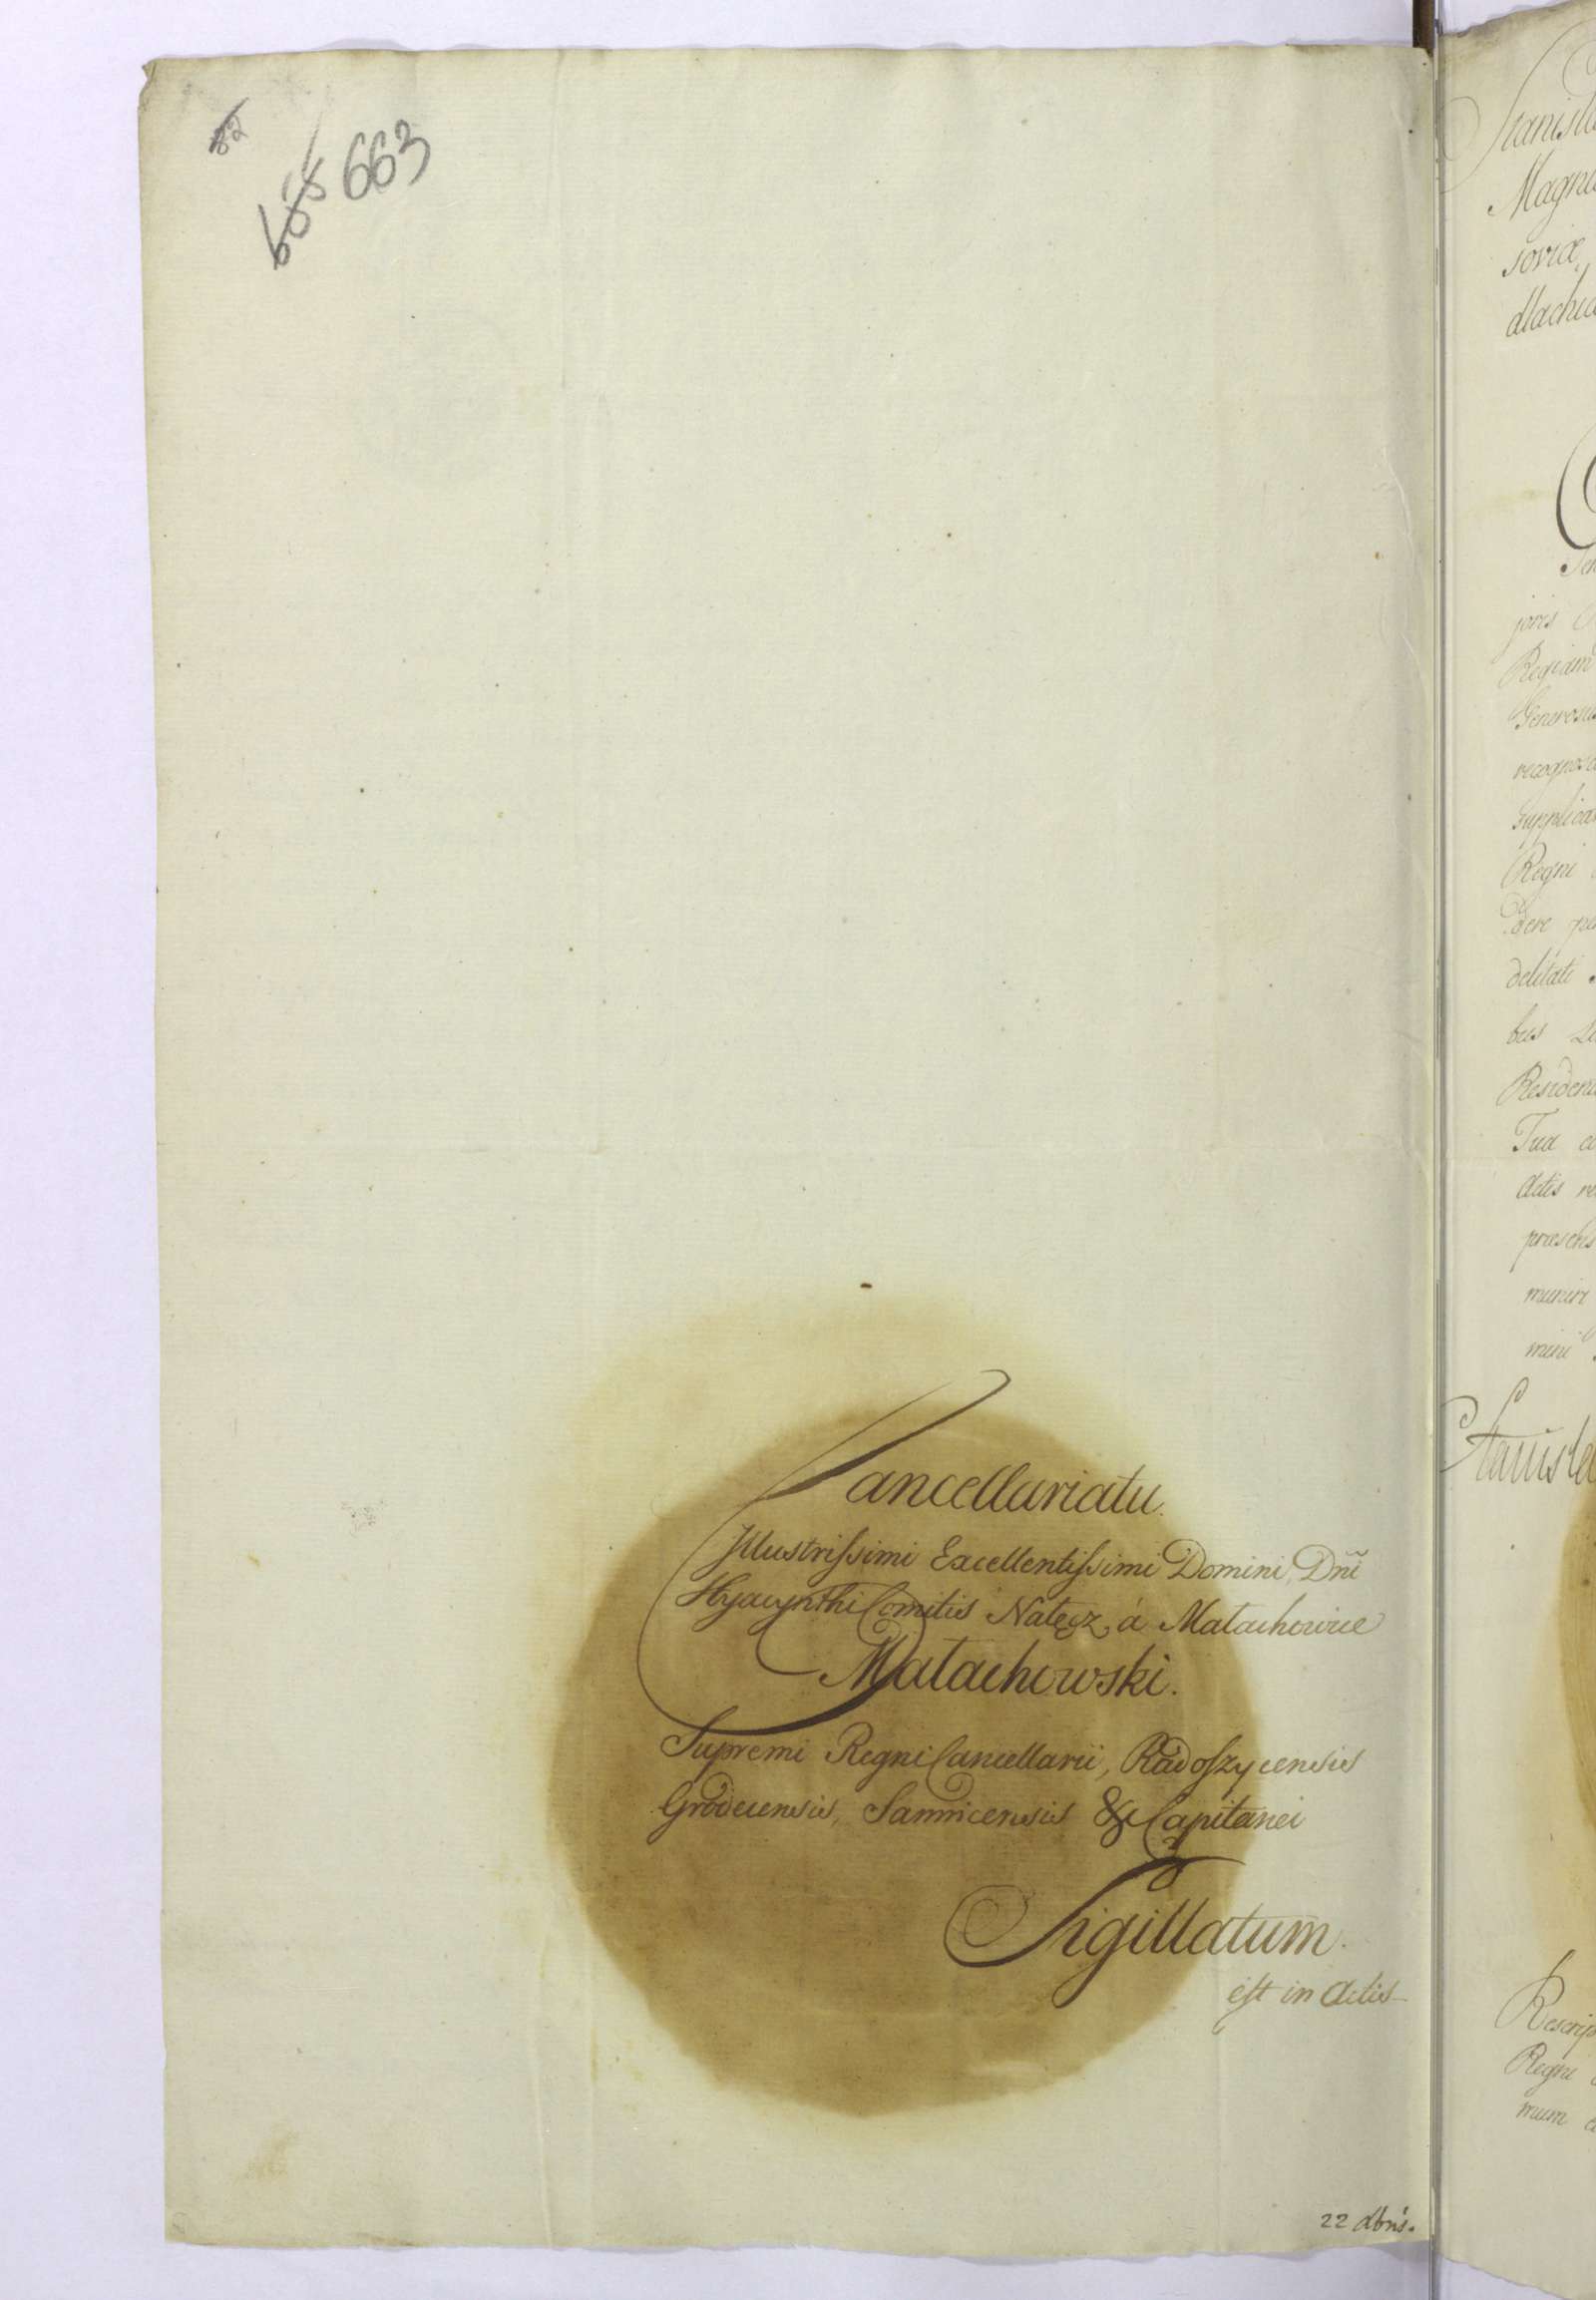 82
663
Cancellariatu.
Illustrissimi Excellentissimi Domini, Dnĩ
Hyacynthi Comitis Nałęcz, á Małachowice
Małachowski.
Supremi Regni Cancellarii, Radoszycensis
Grodecensis, Sannicensis & Capitanei
Sigillatum.
est in Actis
22 dbris.
Stanisla
Magnu
soviæ,
dlachiæ
joris
Regiam
Generosus
recognosc
supplica
Regni
dere pe
delitati
bus
Residen
Tua
Actis re
præsens
munire
mini
Stanisla
Rescrip
Regni
mum